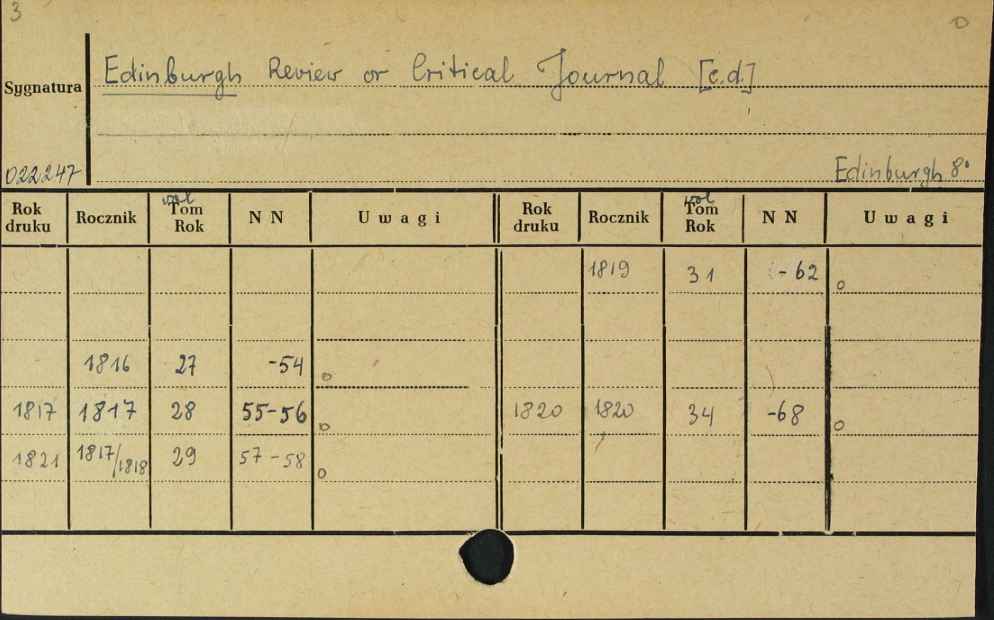 3
Sygnatura
Edinburgh Review or Critical Journal [c.d.]
022247
Edinburgh 8°
Rok druku Rocznik vol Tom Rok N N Uwagi Rok druku Rocznik vol Tom Rok N N Uwagi
1819 31 -62 o
1816 27 -54 o
1817 1817 28 55-56 o 1820 1820 34 -68 o
1821 1817/1818 29 57-58 o